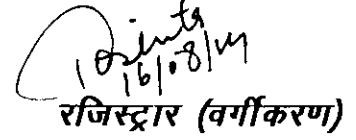 16/08/14
रजिस्ट्रार (वर्गीकरण)